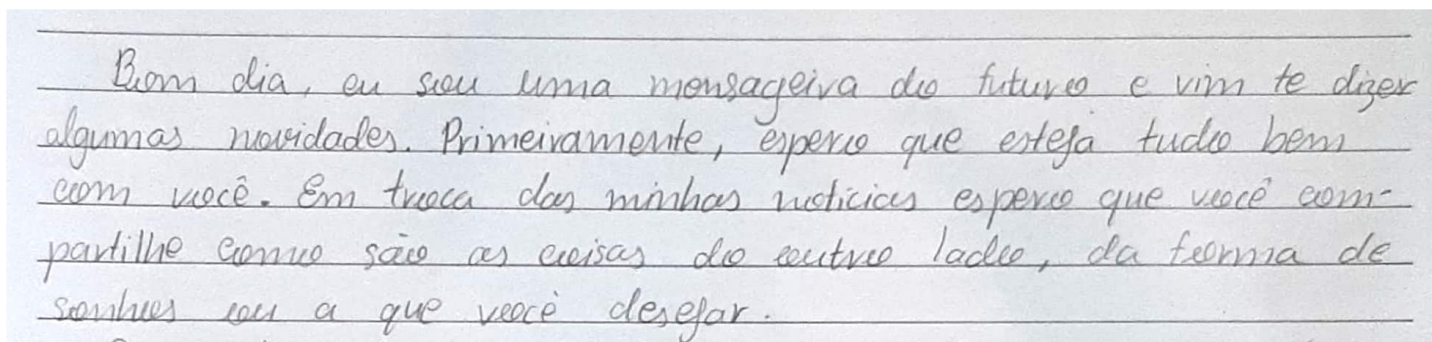 Bom dia, eu sou uma mensageira do futuro e vim te dizer
algumas novidades. Primeiramente, espero que esteja tudo bem
com você. Em troca das minhas notícias espero que você com-
partilhe como são as coisas do outro lado, da forma de
sonhos ou a que você desejar.